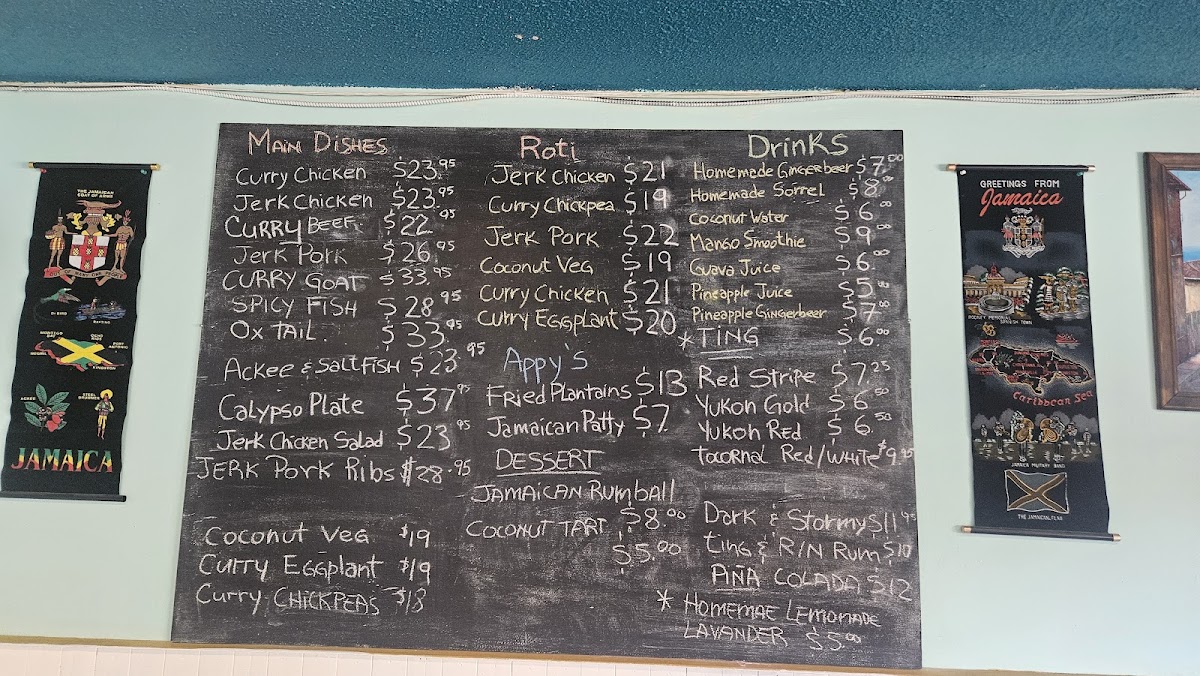 THE JAMAICAN
COAT OF ARMS
DR BIRD
RAFTING
MONTEGO
BAY
OCHO
RIOS
PORT
ANTONIO
NEGRIL
KINGSTON
ACKEE
STEEL
DRUMMER
JAMAICA
MAIN DISHES
Curry Chicken $23.95
Jerk Chicken $23.95
CURRY BEEF $22.95
Jerk Pork $26.95
CURRY GOAT $33.95
SPICY FISH $28.95
OX TAIL. $33.95
ACKEE & SALTFISH $23.95
Calypso Plate $37.95
Jerk Chicken Salad $23.95
JERK PORK Ribs $28.95
Coconut Veg $19
Curry Eggplant $19
Curry CHICKPEAS $18
Roti
Jerk Chicken $21
Curry Chickpea $19
Jerk Pork $22
Coconut Veg $19
Curry Chicken $21
Curry Eggplant $20
Appy's
Fried Plantains $13
Jamaican Patty $7
DESSERT
JAMAICAN RumBall
$8.00
COCONUT TART
$5.00
Drinks
Homemade Gingerbeer $7.00
Homemade Sorrel $8.00
Coconut Water $6.00
Mango Smoothie $9.00
Guava Juice $6.00
Pineapple Juice $5.00
Pineapple Gingerbeer $7.00
* TING $6.00
Red Stripe $7.25
Yukon Gold $6.50
Yukon Red $6.50
Tocornal Red/WHITE
Dark & Stormy $11.95
Ting & R/N RUM $10
AÑA COLADA $12
* HOMEMAE LEMONADE
LAVANDER $5.00
GREETINGS FROM
Jamaica
RODNEY MEMORIAL
SPANISH TOWN
Caribbean Sea
JAMAICA MILITARY BAND
THE JAMAICAN FLAG